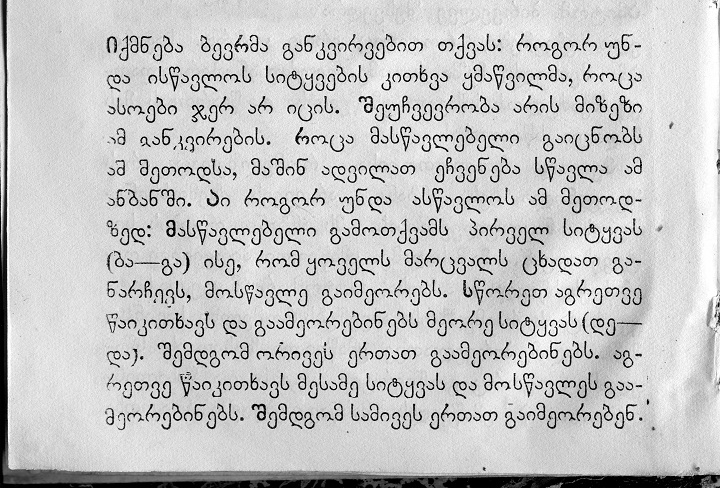 იქმნება ბევრმა განკვირვებით თქვას: როგორ უნ-
და ისწავლოს სიტყვების კითხვა ყმაწვილმა, როცა
ასოები ჯერ არ იცის. შეუჩვევრობა არის მიზეზი
ამ განკვირების. როცა მასწავლებელი გაიცნობს
ამ მეთოდსა, მაშინ ადვილათ ეჩვენება სწავლა ამ
ანბანში. აი როგორ უნდა ასწავლოს ამ მეთოდ-
ზედ: მასწავლებელი გამოთქვამს პირველ სიტყვას
(ბა—გა) ისე, რომ ყოველს მარცვალს ცხადათ გა-
ნარჩევს, მოსწავლე გაიმეორებს. სწორეთ აგრეთვე
წაიკითხავს და გაამეორებინებს მეორე სიტყვას (დე—
და). შემდგომ ორივეს ერთათ გაამეორებინებს. აგ-
რეთვე წაიკითხავს მესამე სიტყვას და მოსწავლეს გაა-
მეორებინებს. შემდგომ სამივეს ერთათ გაიმეორებენ.